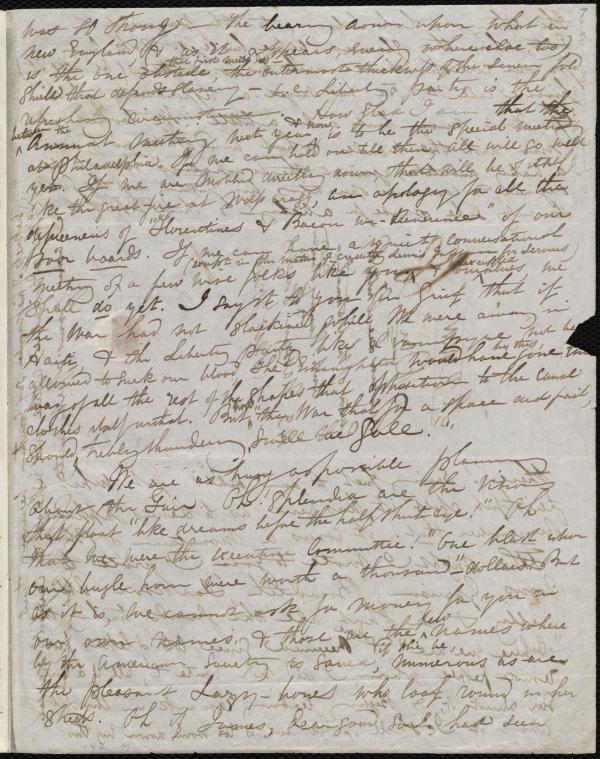 7
was so strong — the bearing down upon what in
New England, & as it appears every where else too
that first meets us
is the one obstacle, the outermost thickness of the seven fold
shield that defends Slavery — i.e. Liberty party, is the
refreshing circumstance. How glad I am that the
between the now
Annual meeting next year is to be the special meeting
at Philadelphia. If we can hold on till then, all will go well
yet. If we are mobbed directly down, there will be a
like the great fire at an apology for all the
of "Florentines & Bacon" of our
Poor boards. If we can have a quiet conversational
except in the matter of
meeting of a few wise folks like you & ourselves, we
shall do yet. I say it to you in grief that if
the War had not slackened while we were away in
Haiti, & the Liberty party like a vampyre not been
by this,
allowed to suck our blood the would have gone the
way of all the rest of the shapes that opposition to the cause
clothes itself withal. But "tho' the War that for a space did fail,
Should trebly thundering swell the gale."
We are as busy as possible planning
about the Fair. Oh splendid are the visions
that float "like dreams before the half shut eye." Oh
that we were the Executive Committee. "One blast upon
our bugle horn were worth a thousand" — dollars. But
as it is, we cannot ask for money for you in
our own names, & those are the few names where
if she be
by the American Society is saved, numerous as are
the pleasant Lazy-bones who loaf round in her
streets. Oh if James, dear good soul had seen